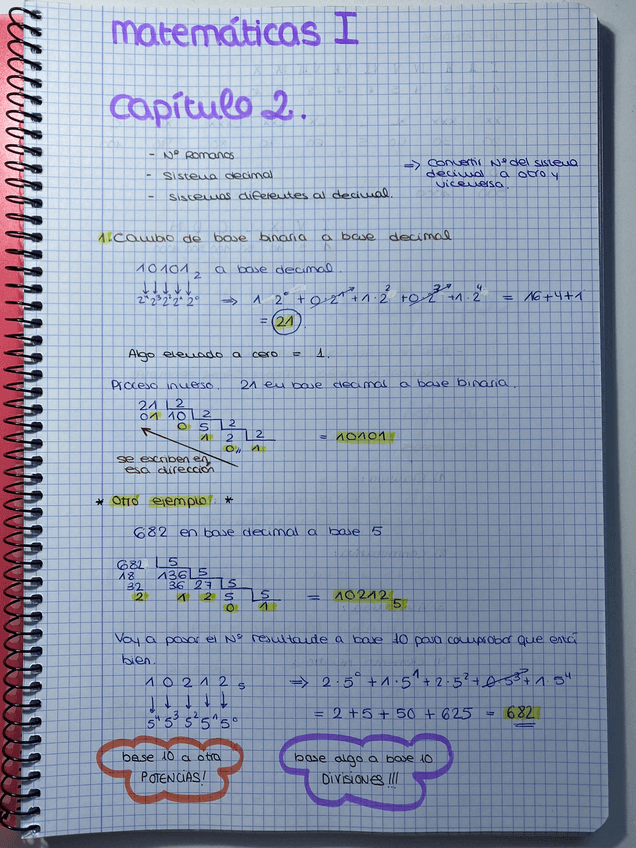 matemáticas I
capítulo 2.
- Nº Romanos
- Sistema decimal
- Sistemas diferentes al decimal.
=> Convertir Nº del sistema
decimal a otro y
viceversa.
1. Cambio de base binaria a base decimal
10101₂ a base decimal.
↓↓↓↓↓
2⁴2³2²2¹2⁰ => 1·2⁰ + 0·2¹ + 1·2² + 0·2³ + 1·2⁴ = 16+4+1
= 21.
Algo elevado a cero = 1.
Proceso inverso. 21 en base decimal a base binaria.
21 2
01 10 2
0 5 2
1 2 2
0 1
= 10101
se escriben en
esa dirección
* Otro ejemplo. *
682 en base decimal a base 5
682 5
18 136 5
32 36 27 5
2 1 2 5 5
0 1
= 10212₅
Voy a pasar el Nº resultante a base 10 para comprobar que está
bien.
1 0 2 1 2 ₅ => 2·5⁰ + 1·5¹ + 2·5² + 0·5³ + 1·5⁴
↓ ↓ ↓ ↓ ↓
5⁴ 5³ 5² 5¹ 5⁰
= 2 + 5 + 50 + 625 = 682
base 10 a otra
POTENCIAS!
base algo a base 10
DIVISIONES!!!